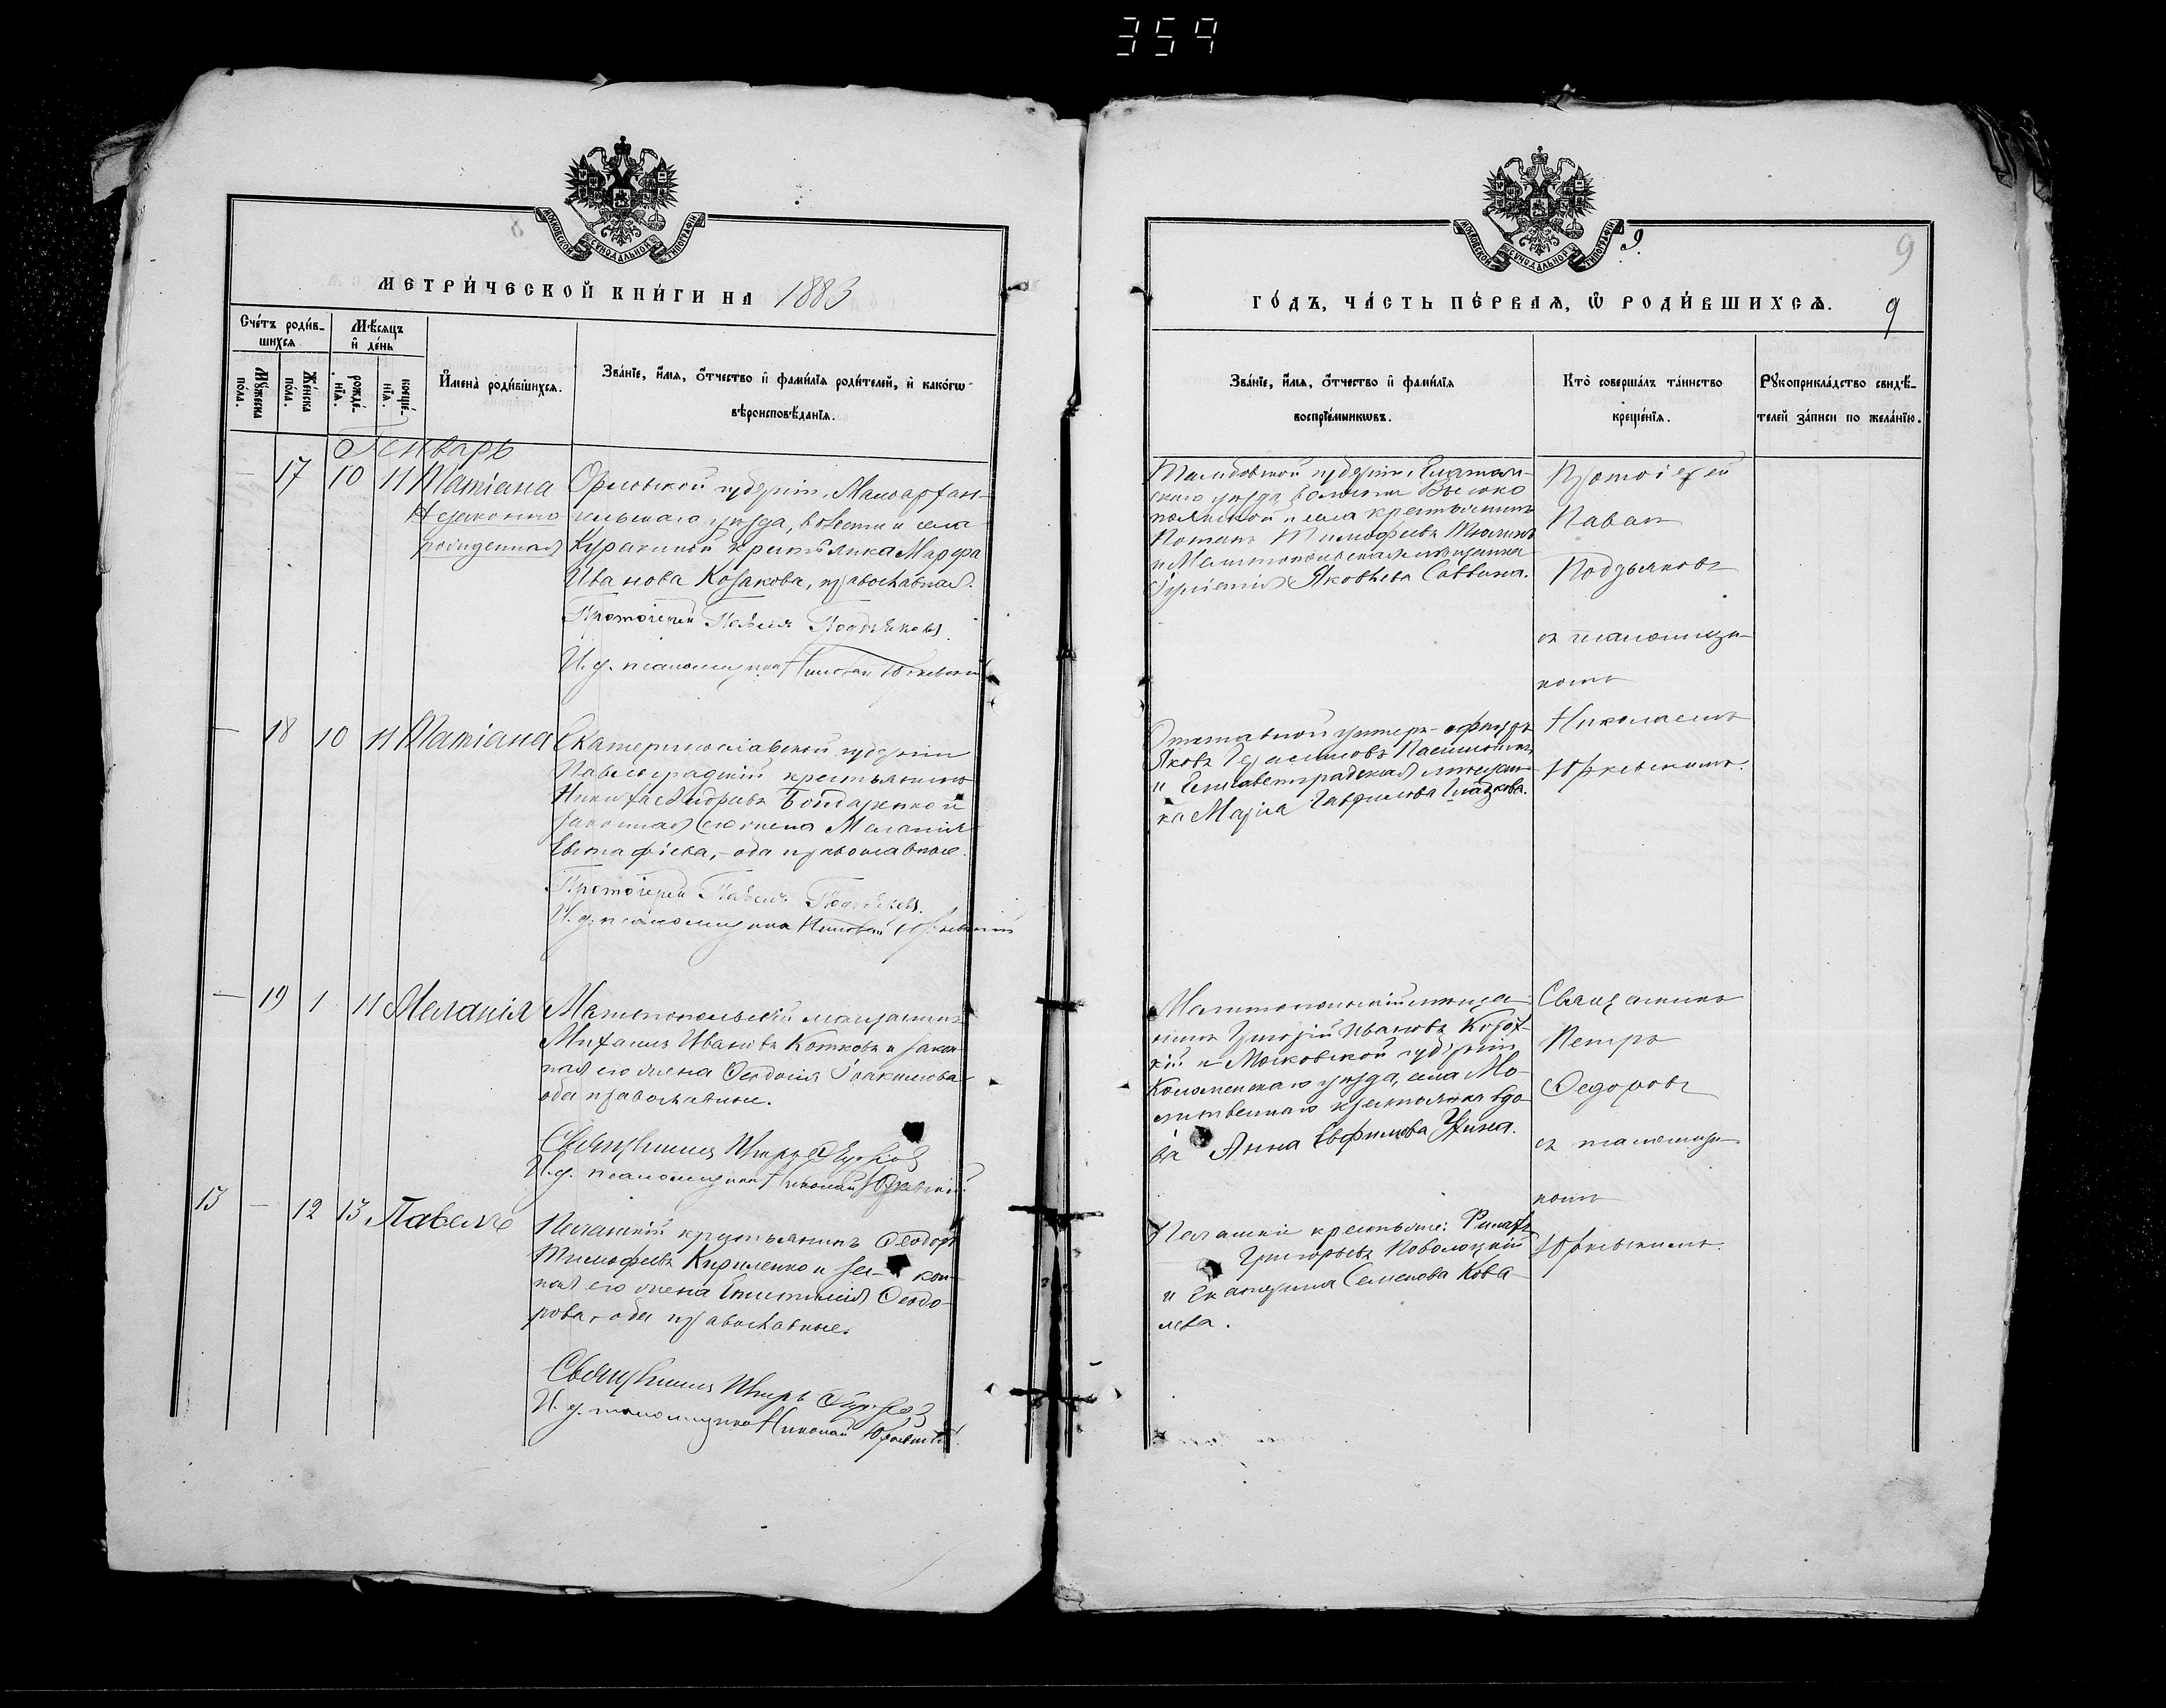 359
МОСКОВСКОЙ СѴНОДАЛЬНОЙ ТИПОГРАФІИ
МЕТРИ́ЧЕСКОЙ КНИ́ГИ НА 1883
Сче́тъ роди́в-
шихсѧ
Мѣ́сѧцъ
и҆ де́нь
Мꙋ́жеска
по́ла.
Же́нска
по́ла.
рожде́-
нїѧ.
креще́-
нїѧ.
И҆мена̀ роди́вшихсѧ.
Зва́нїе, и҆́мѧ, ѻ҆́тчество и҆ фами́лїѧ роди́телей, и҆ како́гѡ
вѣроисповѣ́данїѧ.
Генварь
— 17 10 11 Татіана
Незаконно
рожденная
Орловской губерніи, Малоархан-
гельскаго уѣзда, волости и села
Куракиной крестьянка Марфа
Иванова Козакова, православная.
Протоіерей Павелъ Подъяковъ.
И. д. псаломщика Николай Юркевскій
— 18 10 11 Татіана
Екатеринославской губерніи
Павлоградскій крестьянинъ
Никита Андреевъ Бондаренко и
законная его жена Меланія
Евстафіева, - оба православные.
Протоіерей Павелъ Подъяковъ.
И. д. псаломщика Николай Юркевскій
— 19 1 11 Меланія
Мелитопольскій мѣщанинъ
Михаилъ Ивановъ Котковъ и закон-
ная его жена Ѳеодосія Іоакимова
оба православные.
Священникъ Петръ Ѳедоровъ
И. д. псаломщика Николай Юркевскій.
13 — 12 13 Павелъ
крестьянинъ Ѳеодоръ
Тимофеевъ Кириленко и закон-
ная его жена Епистимія Ѳеодо-
рова, - оба православные.
Священникъ Петръ Ѳедоровъ
И. д. псаломщика Николай Юркевскій.
МОСКОВСКОЙ СѴНОДАЛЬНОЙ ТИПОГРАФІИ
9.
9
ГО́ДЪ, ЧА́СТЬ ПЕ́РВАѦ, Ѽ РОДИ́ВШИХСѦ. 9
Зва́нїе, и҆́мѧ, ѻ҆́тчество и҆ фами́лїѧ
воспрїе́мникѡвъ.
Кто̀ соверша́лъ та́инство
креще́нїѧ.
Рꙋкоприкла́дство свидѣ́-
телей за́писи по жела́нїю.
Тамбовской губерніи, Елатом-
скаго уѣзда, волости Высоко
полянской и села крестьянинъ
Тимофеевъ
и Мелитопольская мѣщанка
Яковлева Саввина.
Протоіерей
Павелъ
Подъяковъ
съ псаломщи-
комъ
Николаемъ
Юркевскимъ.
Отставной унтеръ-офицеръ
Яковъ Герасимовъ
и Елисаветградская мѣщан-
ка Марія Гаврилова Гладкова.
Мелитопольскій мѣща-
нинъ Григорій Ивановъ Корот-
кій и Московской губерніи
Коломенскаго уѣзда, села Мо-
литвеннаго крестьянка вдо-
ва Анна Евфимова
Священникъ
Петръ
Ѳедоровъ
съ псаломщи-
комъ
Юркевскимъ.
крестьяне:
ГригорьевъПоволоцкій
и Екатерина Семенова Кова-
лева.